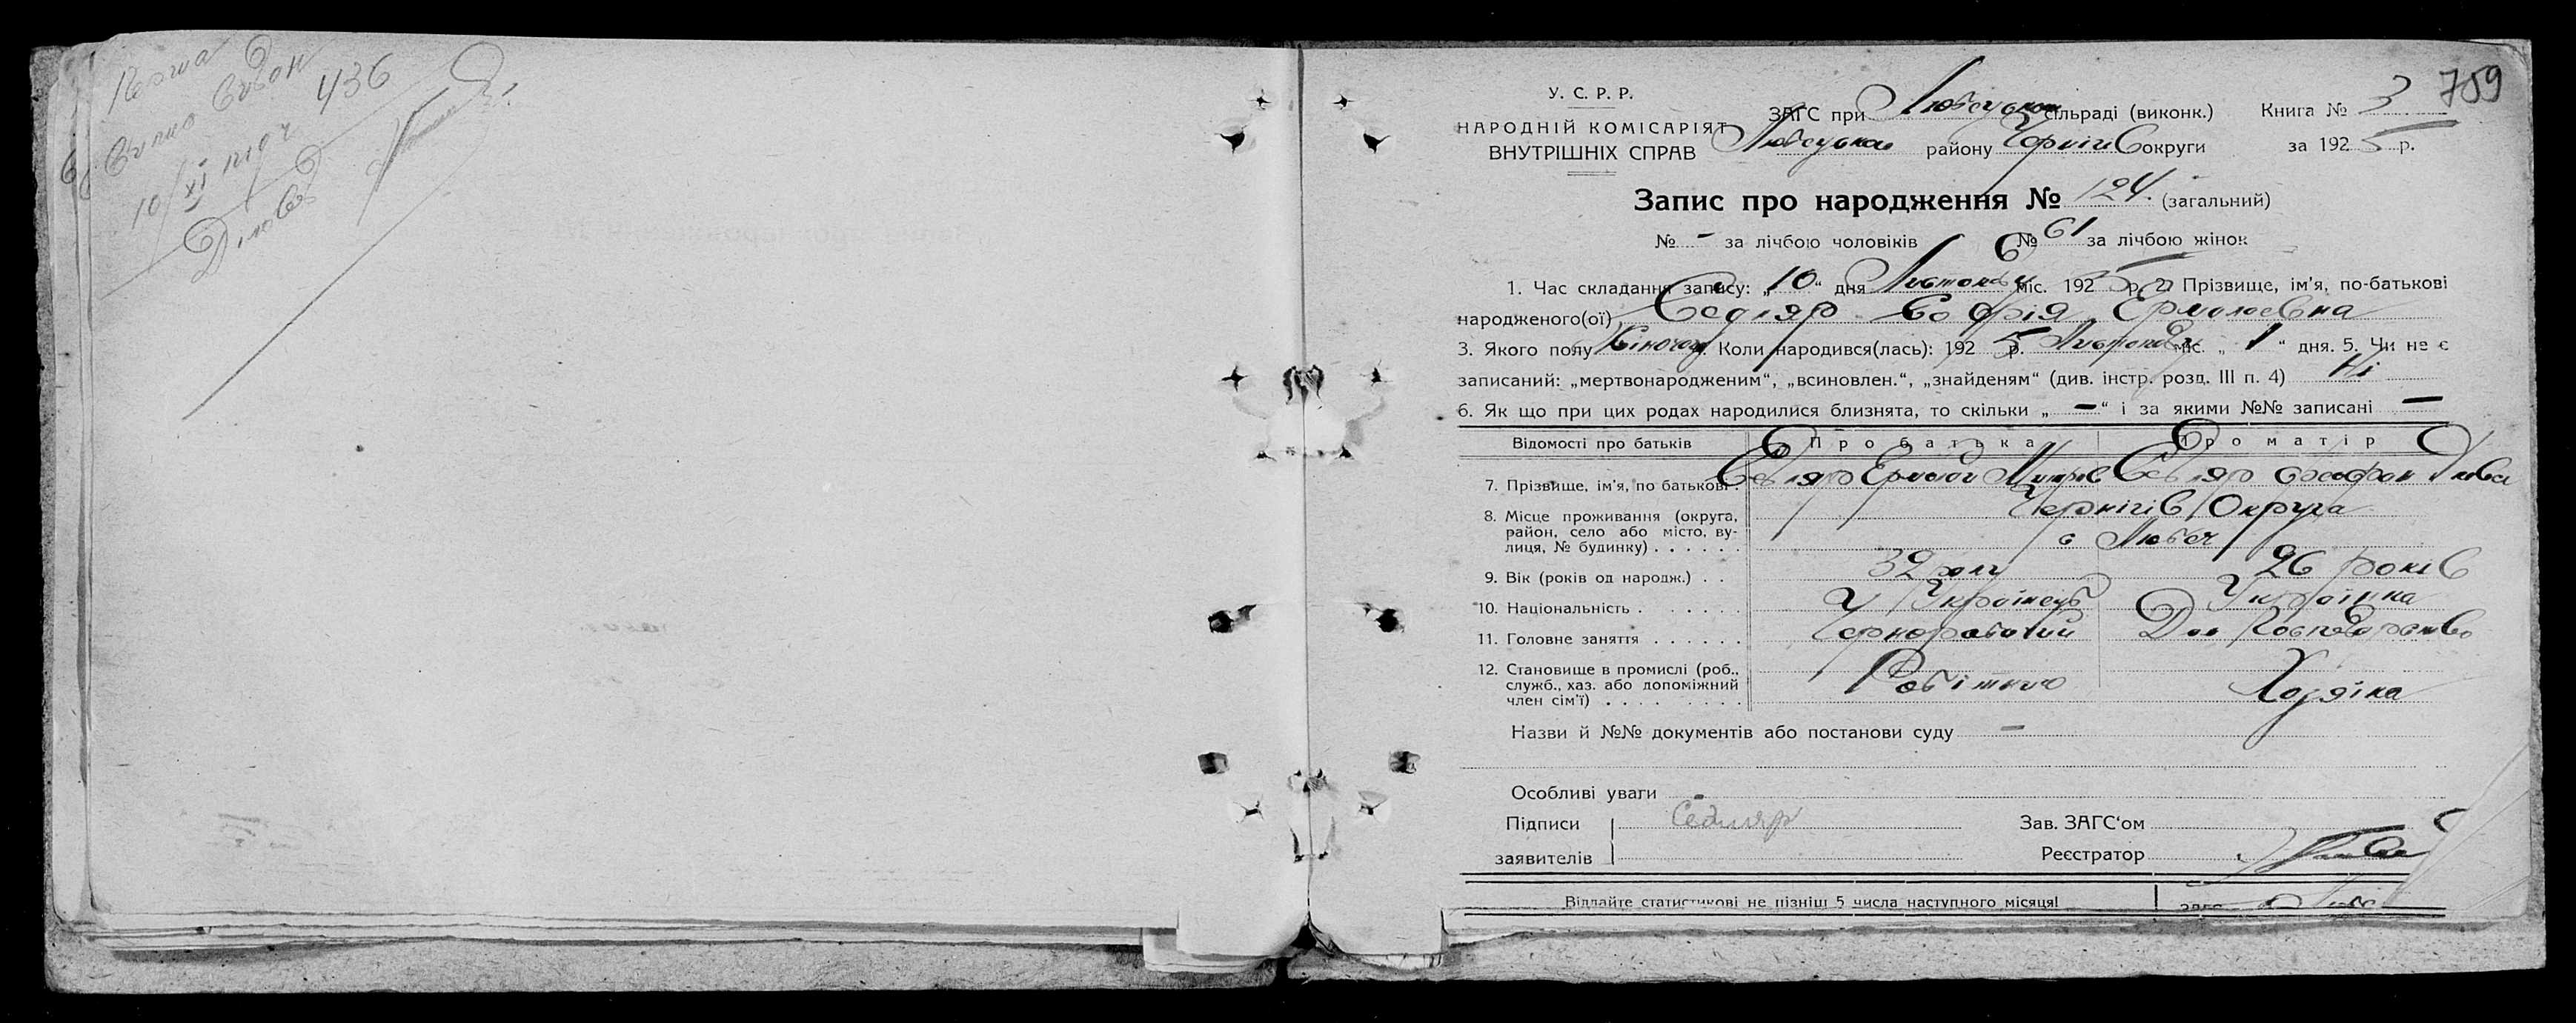 436
10/XI
759
У. С. Р. Р.
НАРОДНІЙ КОМІСАРІЯТ
ВНУТРІШНІХ СПРАВ
ЗАГС при Любецькій сільраді (виконк.) Книга № 3
Любецького району Чернігів округи за 1925 р.
Запис про народження № 124. (загальний)
№ - за лічбою чоловіків № 61 за лічбою жінок
1. Час складання запису: „10“ дня Листопад міс. 1925 р. 2. Прізвище, ім'я, по-батькові
народженого(ої) Седляр Софія Ермолаевна
3. Якого полу Жіночого 4. Коли народився(лась): 1925 р. Листопад міс. „1“ дня. 5. Чи не є
записаний: „мертвонародженим“, „всиновлен.“, „знайденям“ (див. інстр. розд. III п. 4) Ні
6. Як що при цих родах народилися близнята, то скільки „-“ і за якими №№ записані -
Відомості про батьків Про батька Про матір
7. Прізвище, ім'я, по батькові. Седляр Ермолай Седляр
8. Місце проживання (округа, район, село або місто, вулиця, № будинку) Чернігів Округа
с Любеч
9. Вік (років од народж.) 32 роки 26 років
10. Національність Українець Українка
11. Головне заняття Чорноробочий Дом Господарство
12. Становище в промислі (роб., служб., хаз. або допоміжний член сім'ї) Робітник Хазяїка
Назви й №№ документів або постанови суду -
Особливі уваги -
Підписи заявителів Седляр
Зав. ЗАГС'ом
Реєстратор
Віддайте статистикові не пізніш 5 числа наступного місяця!